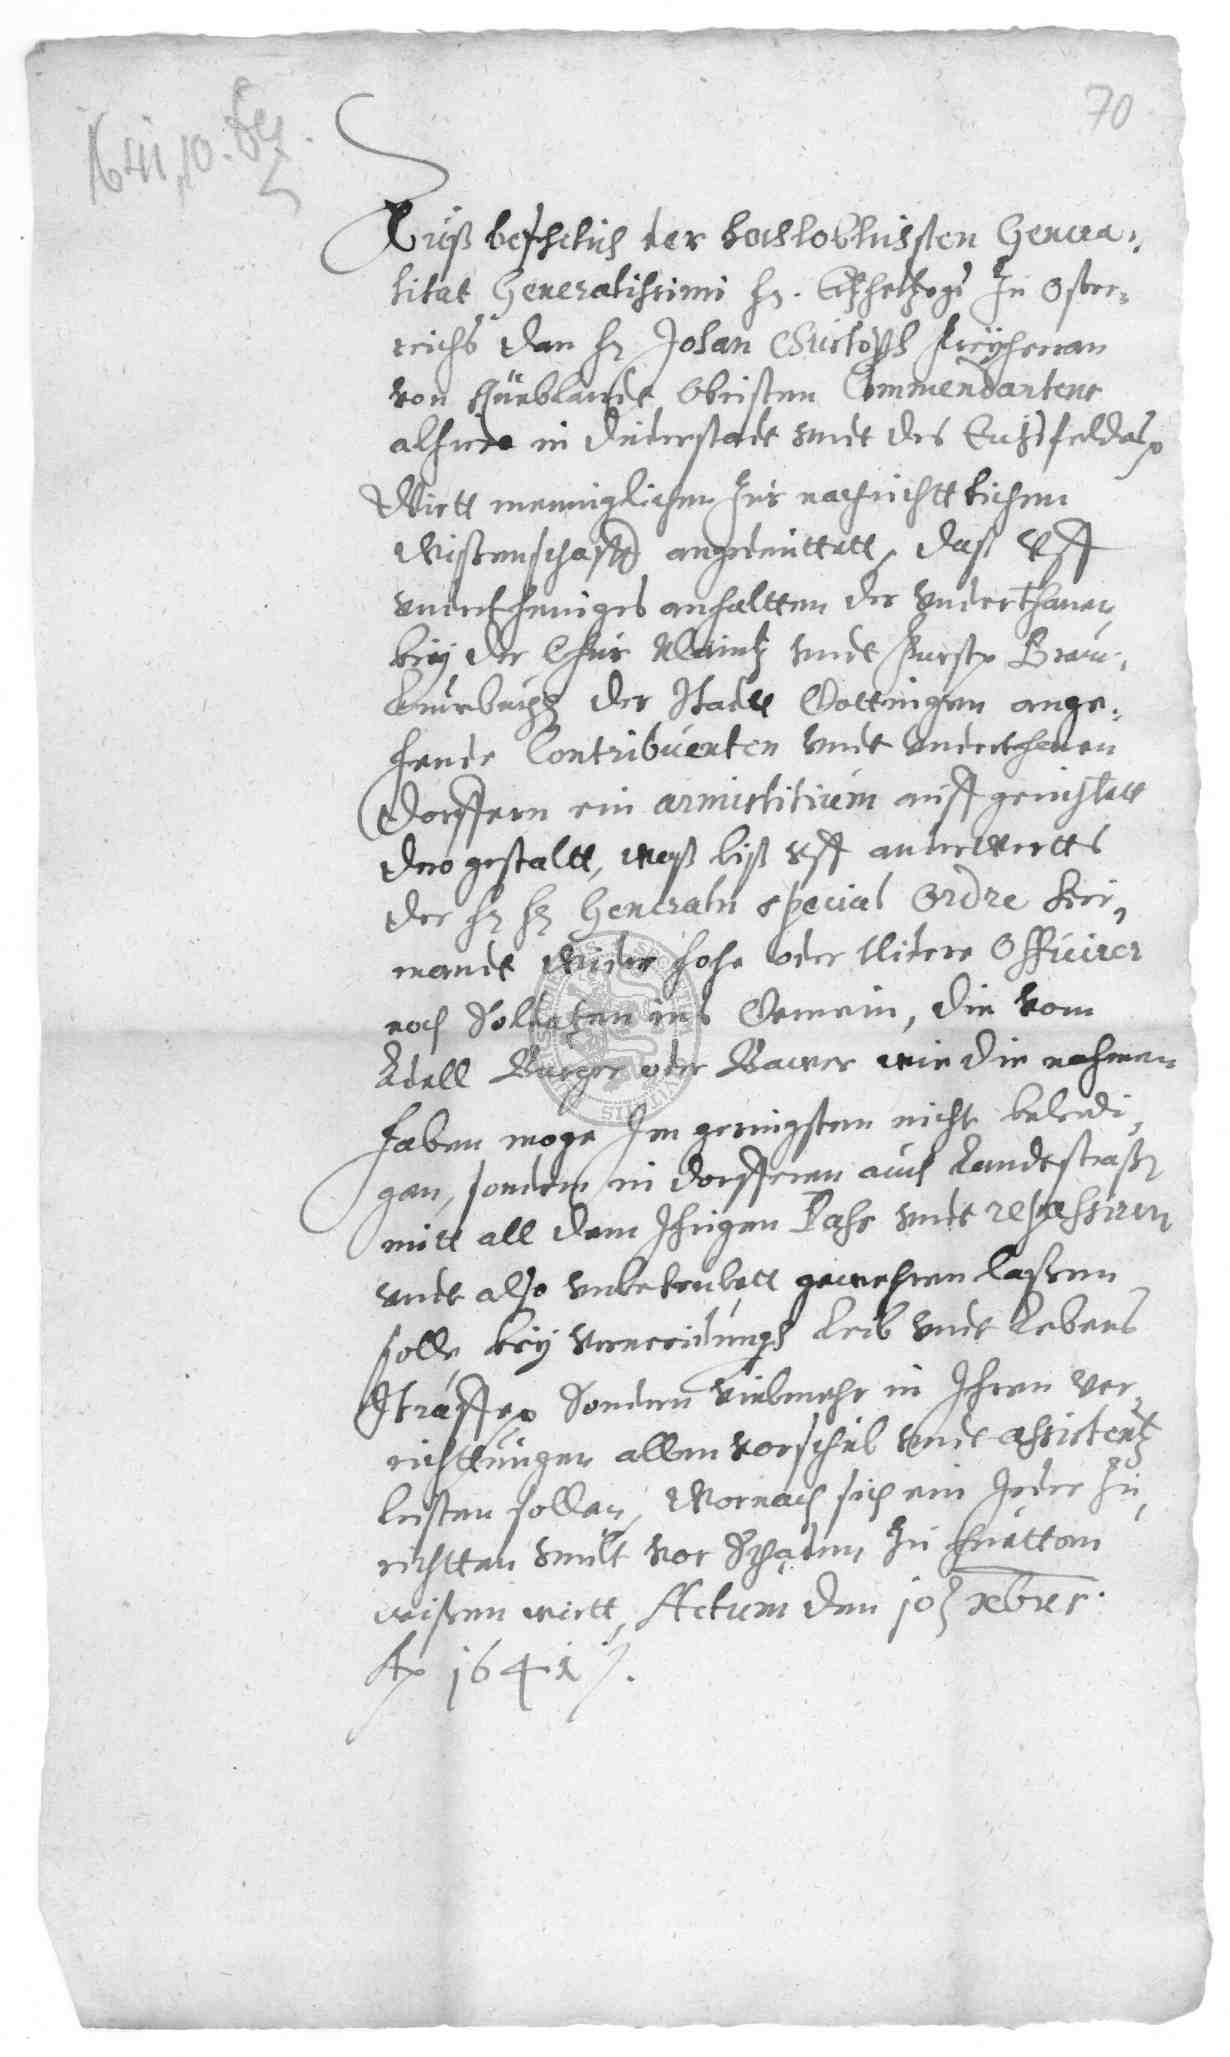 70
1641, 10. Dez.
Auß befehlich der hochloblichsten Genera-
litat Generalissimi h. Ertzhertzogs zu Oster-
reichs dan h. Johan Christoph Freyherrn
von Obristen Commendanten
alhier in Duderstadt undt des Eichsfeldes
Wirtt menniglichen zur nachrichttlichen
wissenschafft angedeuttett, daß uff
undertheniges anhaltten der underthanen
bey der Chur Maintz undt Furst. Braun-
der Stadt Gottingen ange-
hende Contribuenten undt underthanen
Dorffern ein armistitium auffgerichtett
dero gestaltt, waß biß uff anderwerts
der h. h. Generaln special Ordre
mandt wieder hohe oder Nidere Officirer
noch Soldaten ins Gemein, die vom
Adell Burger oder Bawer wie die nahmen
haben moge Im geringsten nicht beleidi-
gen, sondern in dorfferen auch Landtstraß
mitt all dem Ihrigen Pass undt repassiren
undt also unbetrubett gewehren lassen
solle, bey vermeidungh Leib undt Lebens
Straffe Sondern vielmehr in Ihren ver-
richttungen allen vorschub undt assistentz
leisten sollen, Wornach sich ein Jeder zu
richtten undt vor Schaden zu huetten
wissen wirtt, Actum den 10 xbris
Ao 1641.